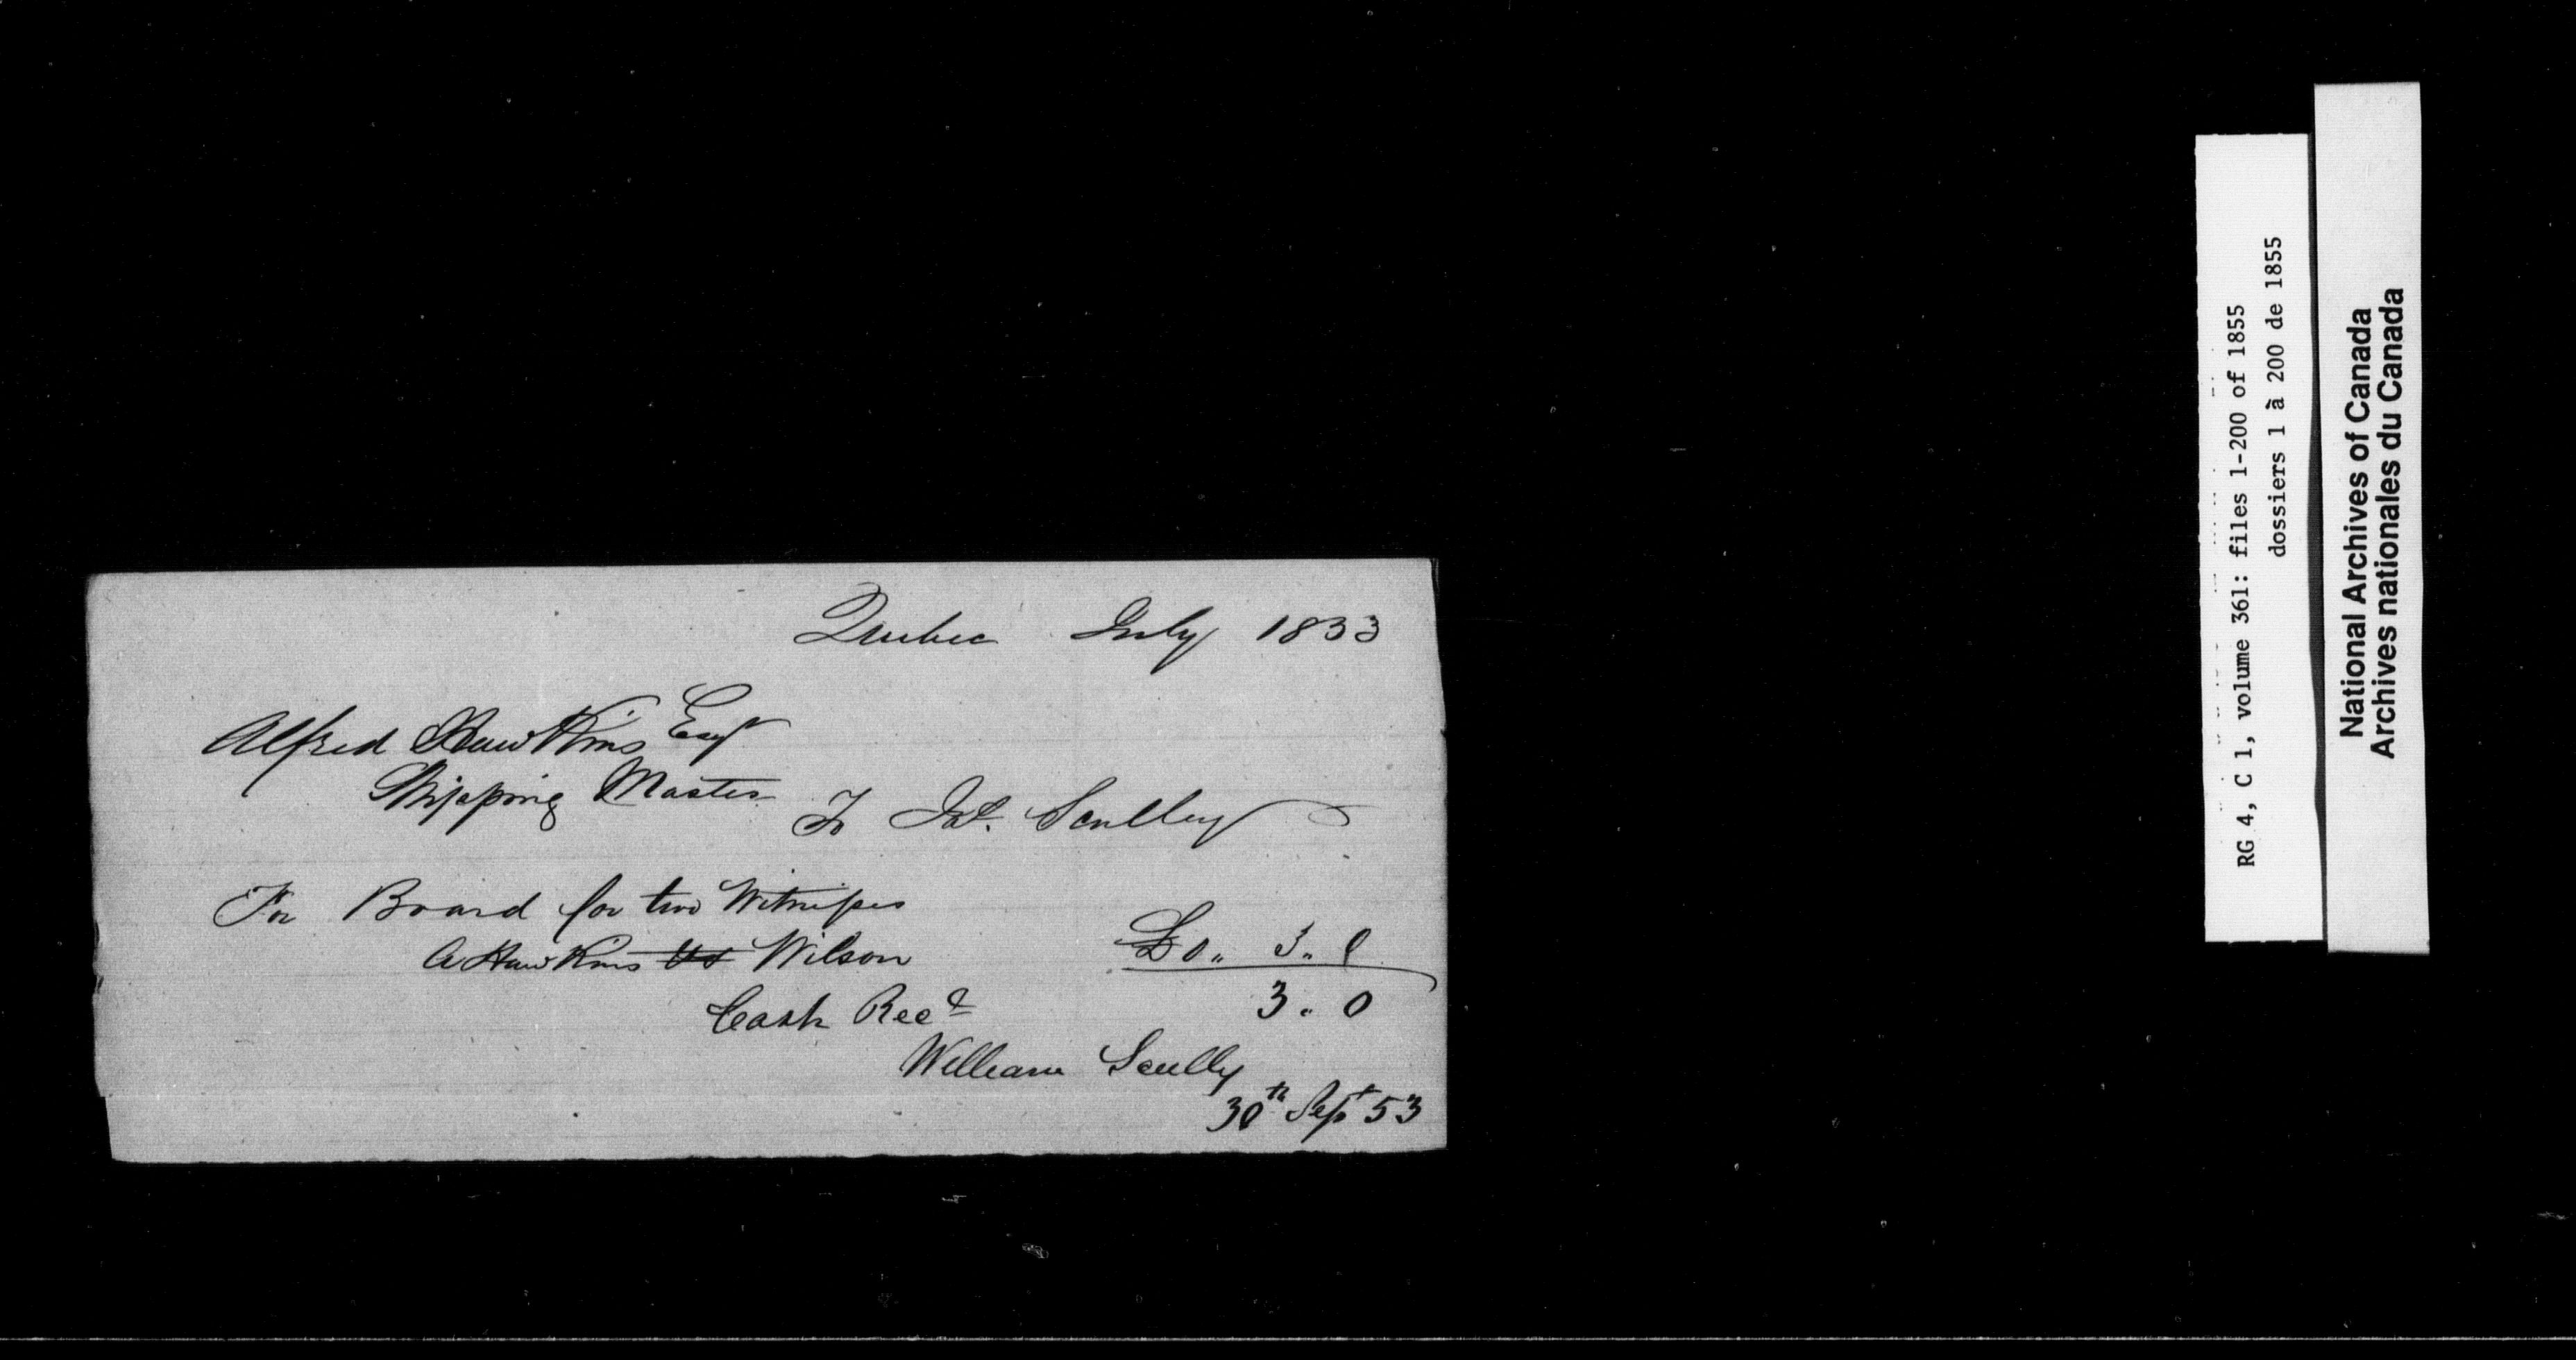 Quebec July 1853
Alfred Hawkins Esqr
Shipping Master
To Jas. Scully
For Board for two Witnesses
A Hawkins vs Wilson £0 „ 3 „ 0
3 . 0
Cash Recd
William Scully
30th Sept 53
RG 4, C 1, volume 361: files 1-200 of 1855
dossiers 1 à 200 de 1855
National Archives of Canada
Archives nationales du Canada